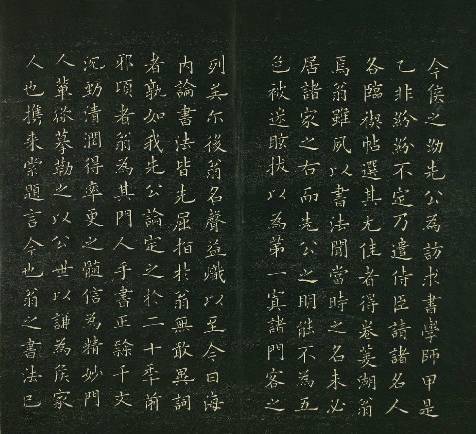 今侯之幼先公為訪求書學師甲是
乙非紛紛不定乃遣侍臣請諸名人
各臨禊帖選其尤佳者得卷菱湖翁
焉翁雖夙以書法聞當時之名未必
居諸家之右而先公之明能不為五
色被迷眩拔以為第一寘諸門客之
列美尓後翁名聲益熾以至今日海
内論書法皆先屈指於翁無敢異詞
者歟如我先公論定之於二十季前
邪頃者翁為其門人手書正隸千文
沉勁清潤得率更之髓信為精妙門
人輩欲摹勒之以公世以謙為侯家
人也携來索題言今也翁之書法已